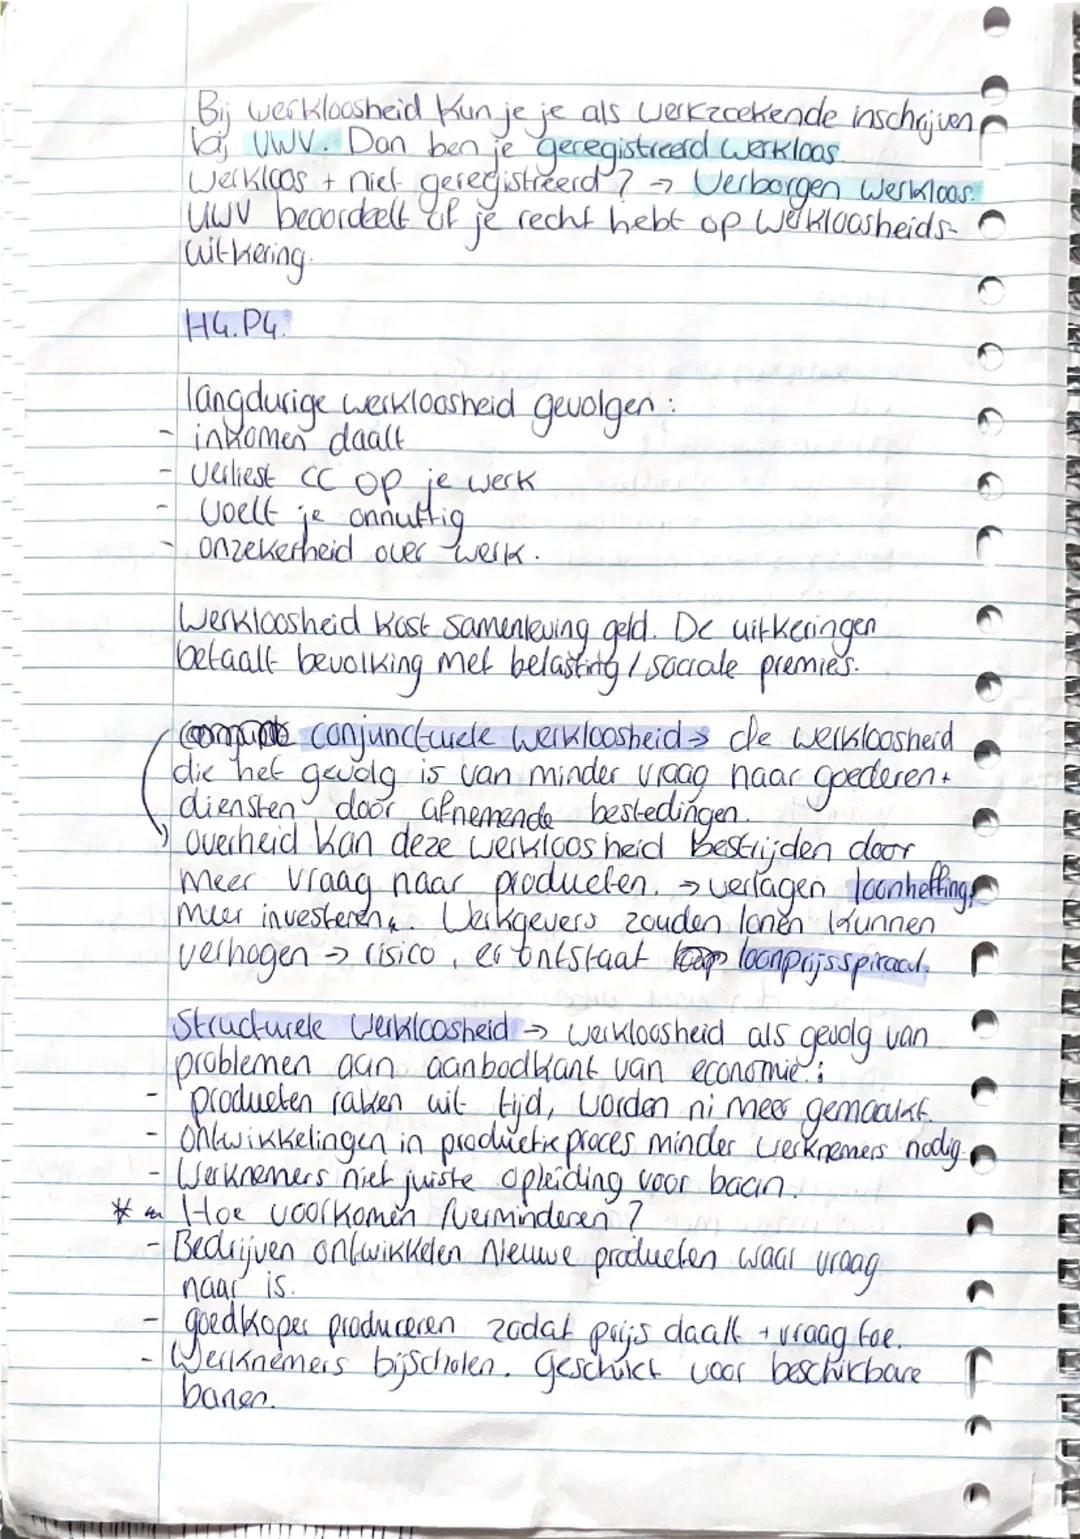 Bij werkloosheid kun je je als werkzoekende inschrijven
bij UWV. Dan ben je geregistreerd werkloos.
Werkloos + niet geregistreerd? → Verborgen werkloos.
UWV beoordeelt of je recht hebt op werkloosheids-
uitkering.
H4.P4.
langdurige werkloosheid gevolgen:
- inkomen daalt
- verliest CC op je werk
- voelt je onnuttig
- onzekerheid over werk.
Werkloosheid kost samenleving geld. De uitkeringen
betaalt bevolking met belasting / sociale premies.
conjuncturele werkloosheid → de werkloosheid
die het gevolg is van minder vraag naar goederen +
diensten door afnemende bestedingen.
overheid kan deze werkloosheid bestrijden door
meer vraag naar producten. → verlagen loonheffing,
meer investeren. Werkgevers zouden lonen kunnen
verhogen → risico, er ontstaat loonprijsspiraal.
Structurele werkloosheid → werkloosheid als gevolg van
problemen aan aanbodkant van economie:
- producten raken uit tijd, worden ni meer gemaakt.
- ontwikkelingen in productieproces minder werknemers nodig.
- Werknemers niet juiste opleiding voor baan.
* Hoe voorkomen / verminderen?
- Bedrijven ontwikkelen nieuwe producten waar vraag
naar is.
- goedkoper produceren zodat prijs daalt + vraag toe.
- Werknemers bijscholen. Geschikt voor beschikbare
banen.